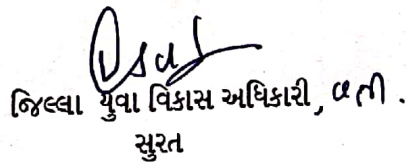 જિલ્લા યુવા વિકાસ અધિકારી, વતી.
સુરત